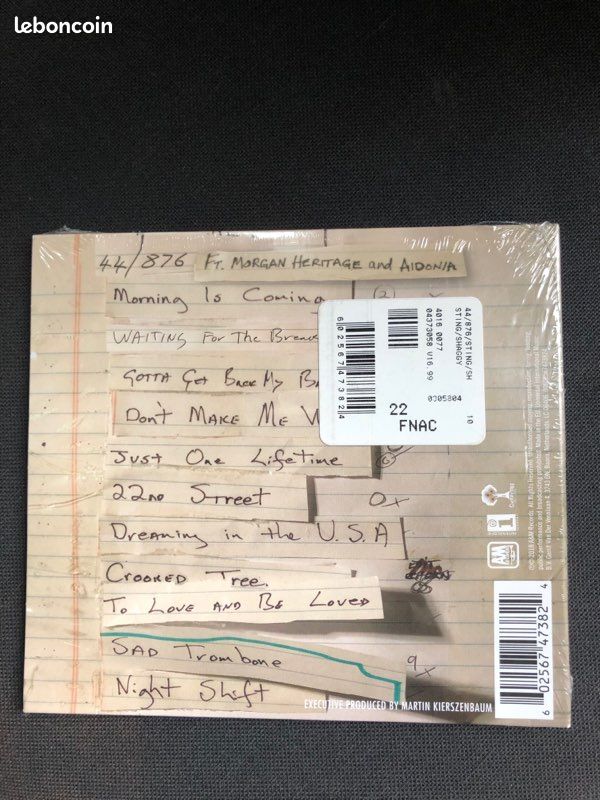 leboncoin
44/876 FT. MORGAN HERITAGE and AIDONIA
Morning Is Coming
(2)
WAITING For The
GOTTA GET BACK My
DON'T MAKE ME
JUST One Lifetime
22ND STREET
Dreaming in the U.S.A
CROOKED Tree.
TO LOVE AND BE LOVED
SAD Trombone
9x
Night Shift
EXECUTIVE PRODUCED BY MARTIN KIERSZENBAUM
44/876/STING/SH
STING/SHAGGY
4016 0077
04373058 V16.99
10
22
FNAC
6 02567 47382 4
A&M
Cherrytree
6 02567 47382 4